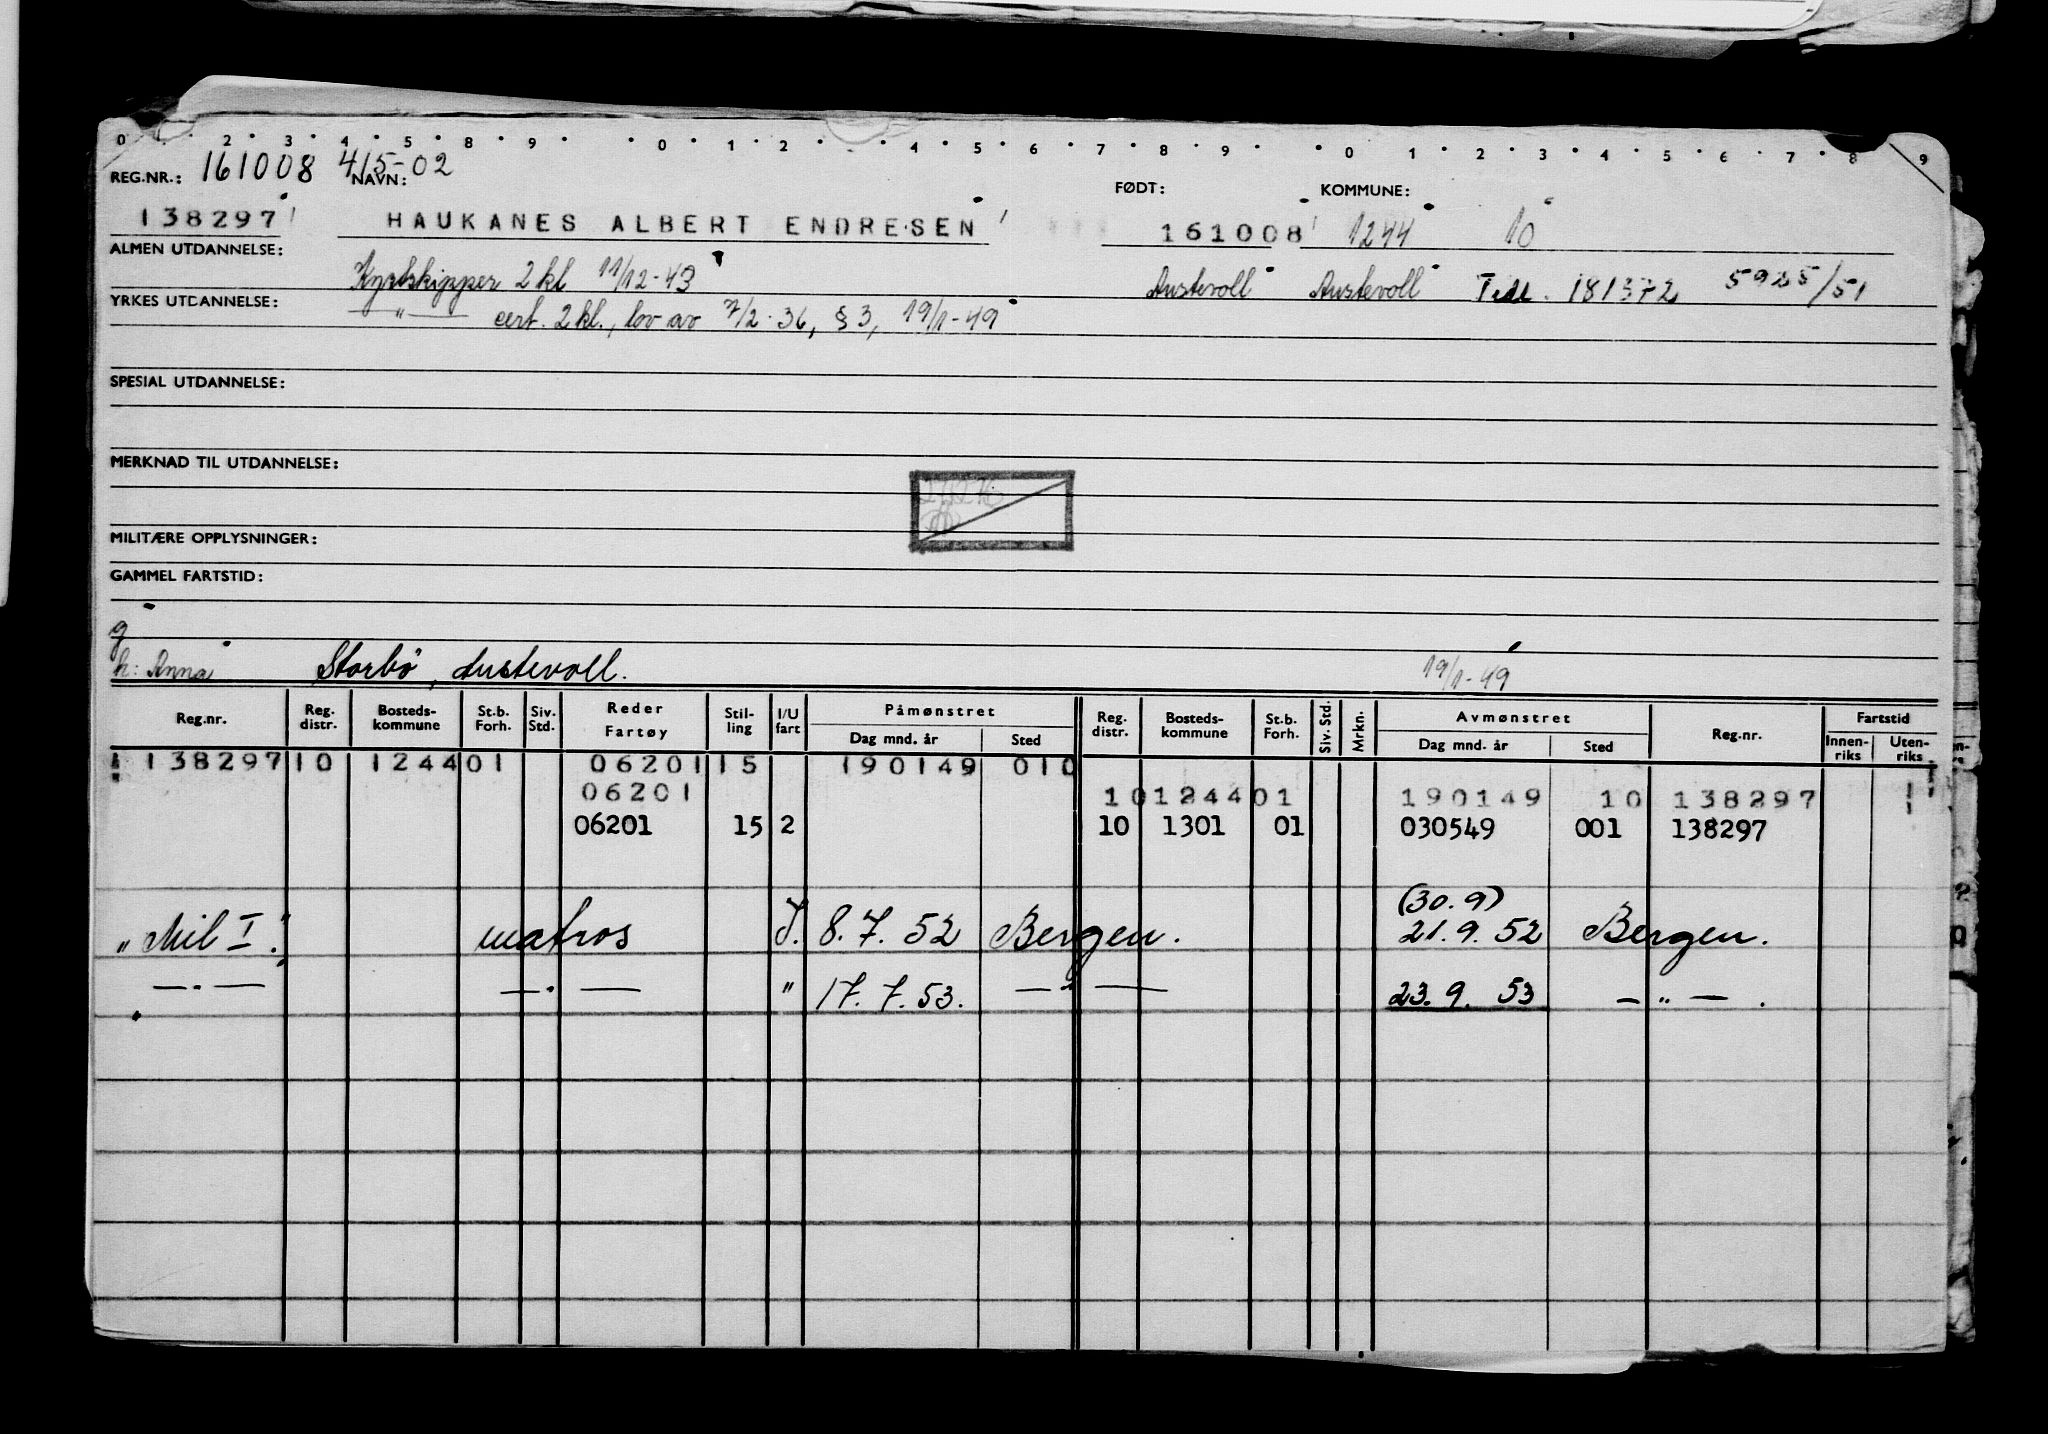 0 2 3 4 5 8 9 0 1 2 4 5 6 7 8 9 0 1 2 3 4 5 6 7 8 9
REG.NR.: 161008 415-02
NAVN: FØDT: KOMMUNE:
138297 HAUKANES ALBERT ENDRESEN 161008 1244 10
ALMEN UTDANNELSE: Kystskipper 2 kl 11/12-43 Austevoll Austevoll Tedl. 181372 5925/51
YRKES UTDANNELSE: —"— cert. 2 kl., lov av 7/2-36, § 3, 19/1-49
SPESIAL UTDANNELSE:
MERKNAD TIL UTDANNELSE:
MILITÆRE OPPLYSNINGER:
GAMMEL FARTSTID:
g
h: Anna Storbø, Austevoll. 19/1-49
Reg.nr. Reg. distr. Bosteds-kommune St.b. Forh. Siv. Std. Reder Fartøy Stil-ling I/U fart Påmønstret Dag mnd. år Sted Reg. distr. Bosteds-kommune St.b. Forh. Siv. Std. Mrkn. Avmønstret Dag mnd. år Sted Reg.nr. Fartstid Innen-riks Uten-riks
138297 10 1244 01 06201 15 190149 010
06201 10 1244 01 190149 10 138297
06201 15 2 10 1301 01 030549 001 138297
(30.9)
"Mil I." matros I. 8.7.52 Bergen. 21.9.52 Bergen.
—"— —"— " 17.7.53. —"— 23.9.53 —"—.